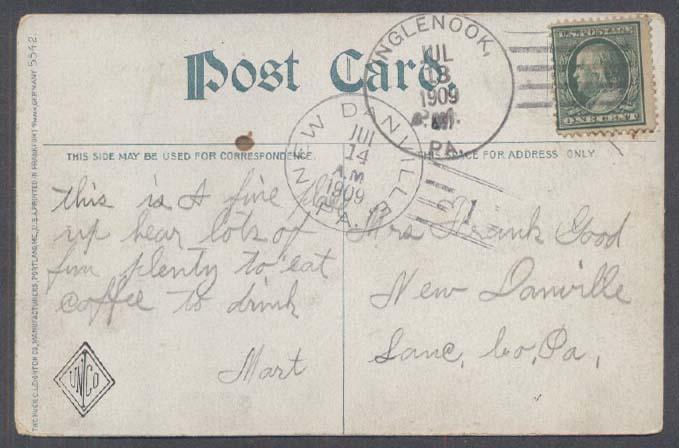 Post Card.
INGLENOOK,
JUL
13
1909
PA.
ONE CENT
NEW DANVILLE
JUL
14
A.M
1909
PA.
THIS SIDE MAY BE USED FOR CORRESPONDENCE.
THIS SPACE FOR ADDRESS ONLY.
this is A fine place
up hear lots of
fun plenty to eat
coffee to drink
Mart
Mrs Frank Good
New Danville
Lanc, Co, Pa,
UNCo
THE HUGH C. LEIGHTON CO., MANUFACTURERS, PORTLAND, ME., U.S.A. PRINTED IN FRANKFORT GERMANY 5542